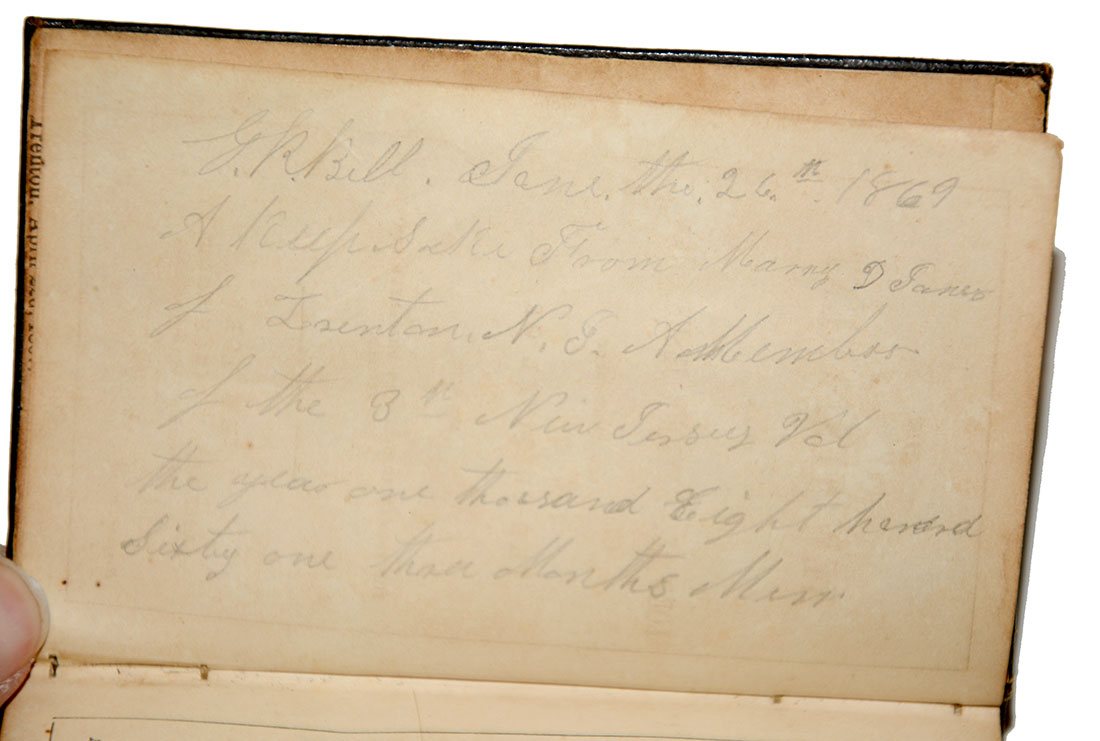 G. R. Bell. June. the. 26.th. 1869
A Keep Sake From Marry D Janes
of Trenton. N. J. A Member
of the 3th New Jersey Vol
the year one thousand Eight hundrd
Sixty one three Months Men.
Trenton, April